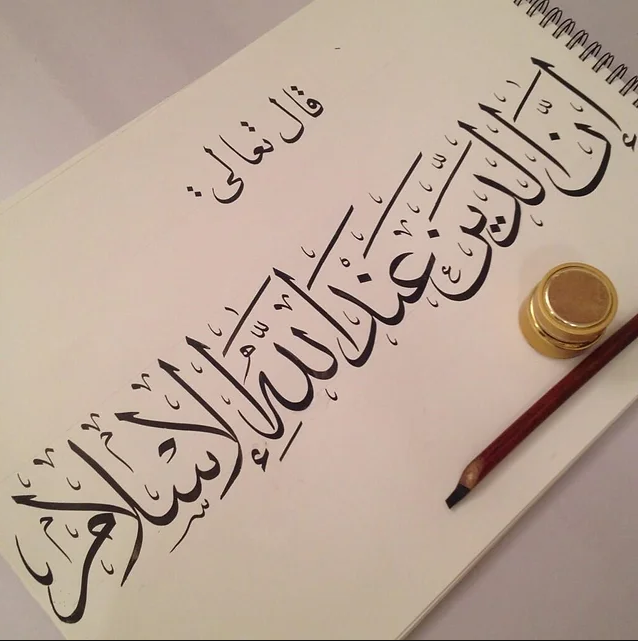 قال تعالى:
إن الدين عند الله الإسلام